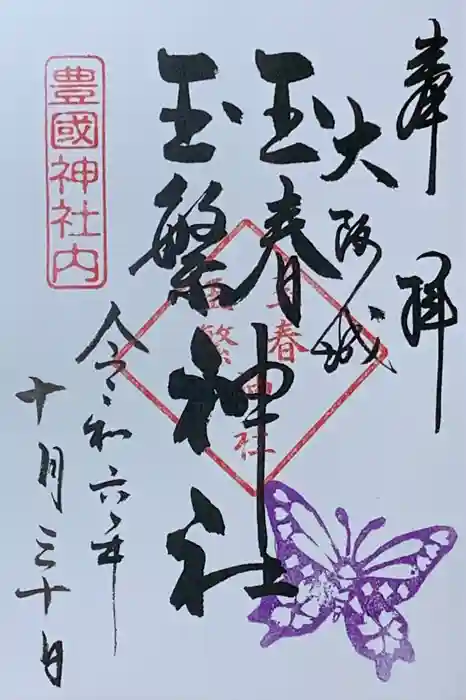 奉拝
大阪城
玉春
玉繁
神社
玉春
玉繁
神社
豊國神社内
令和六年
十月三十日